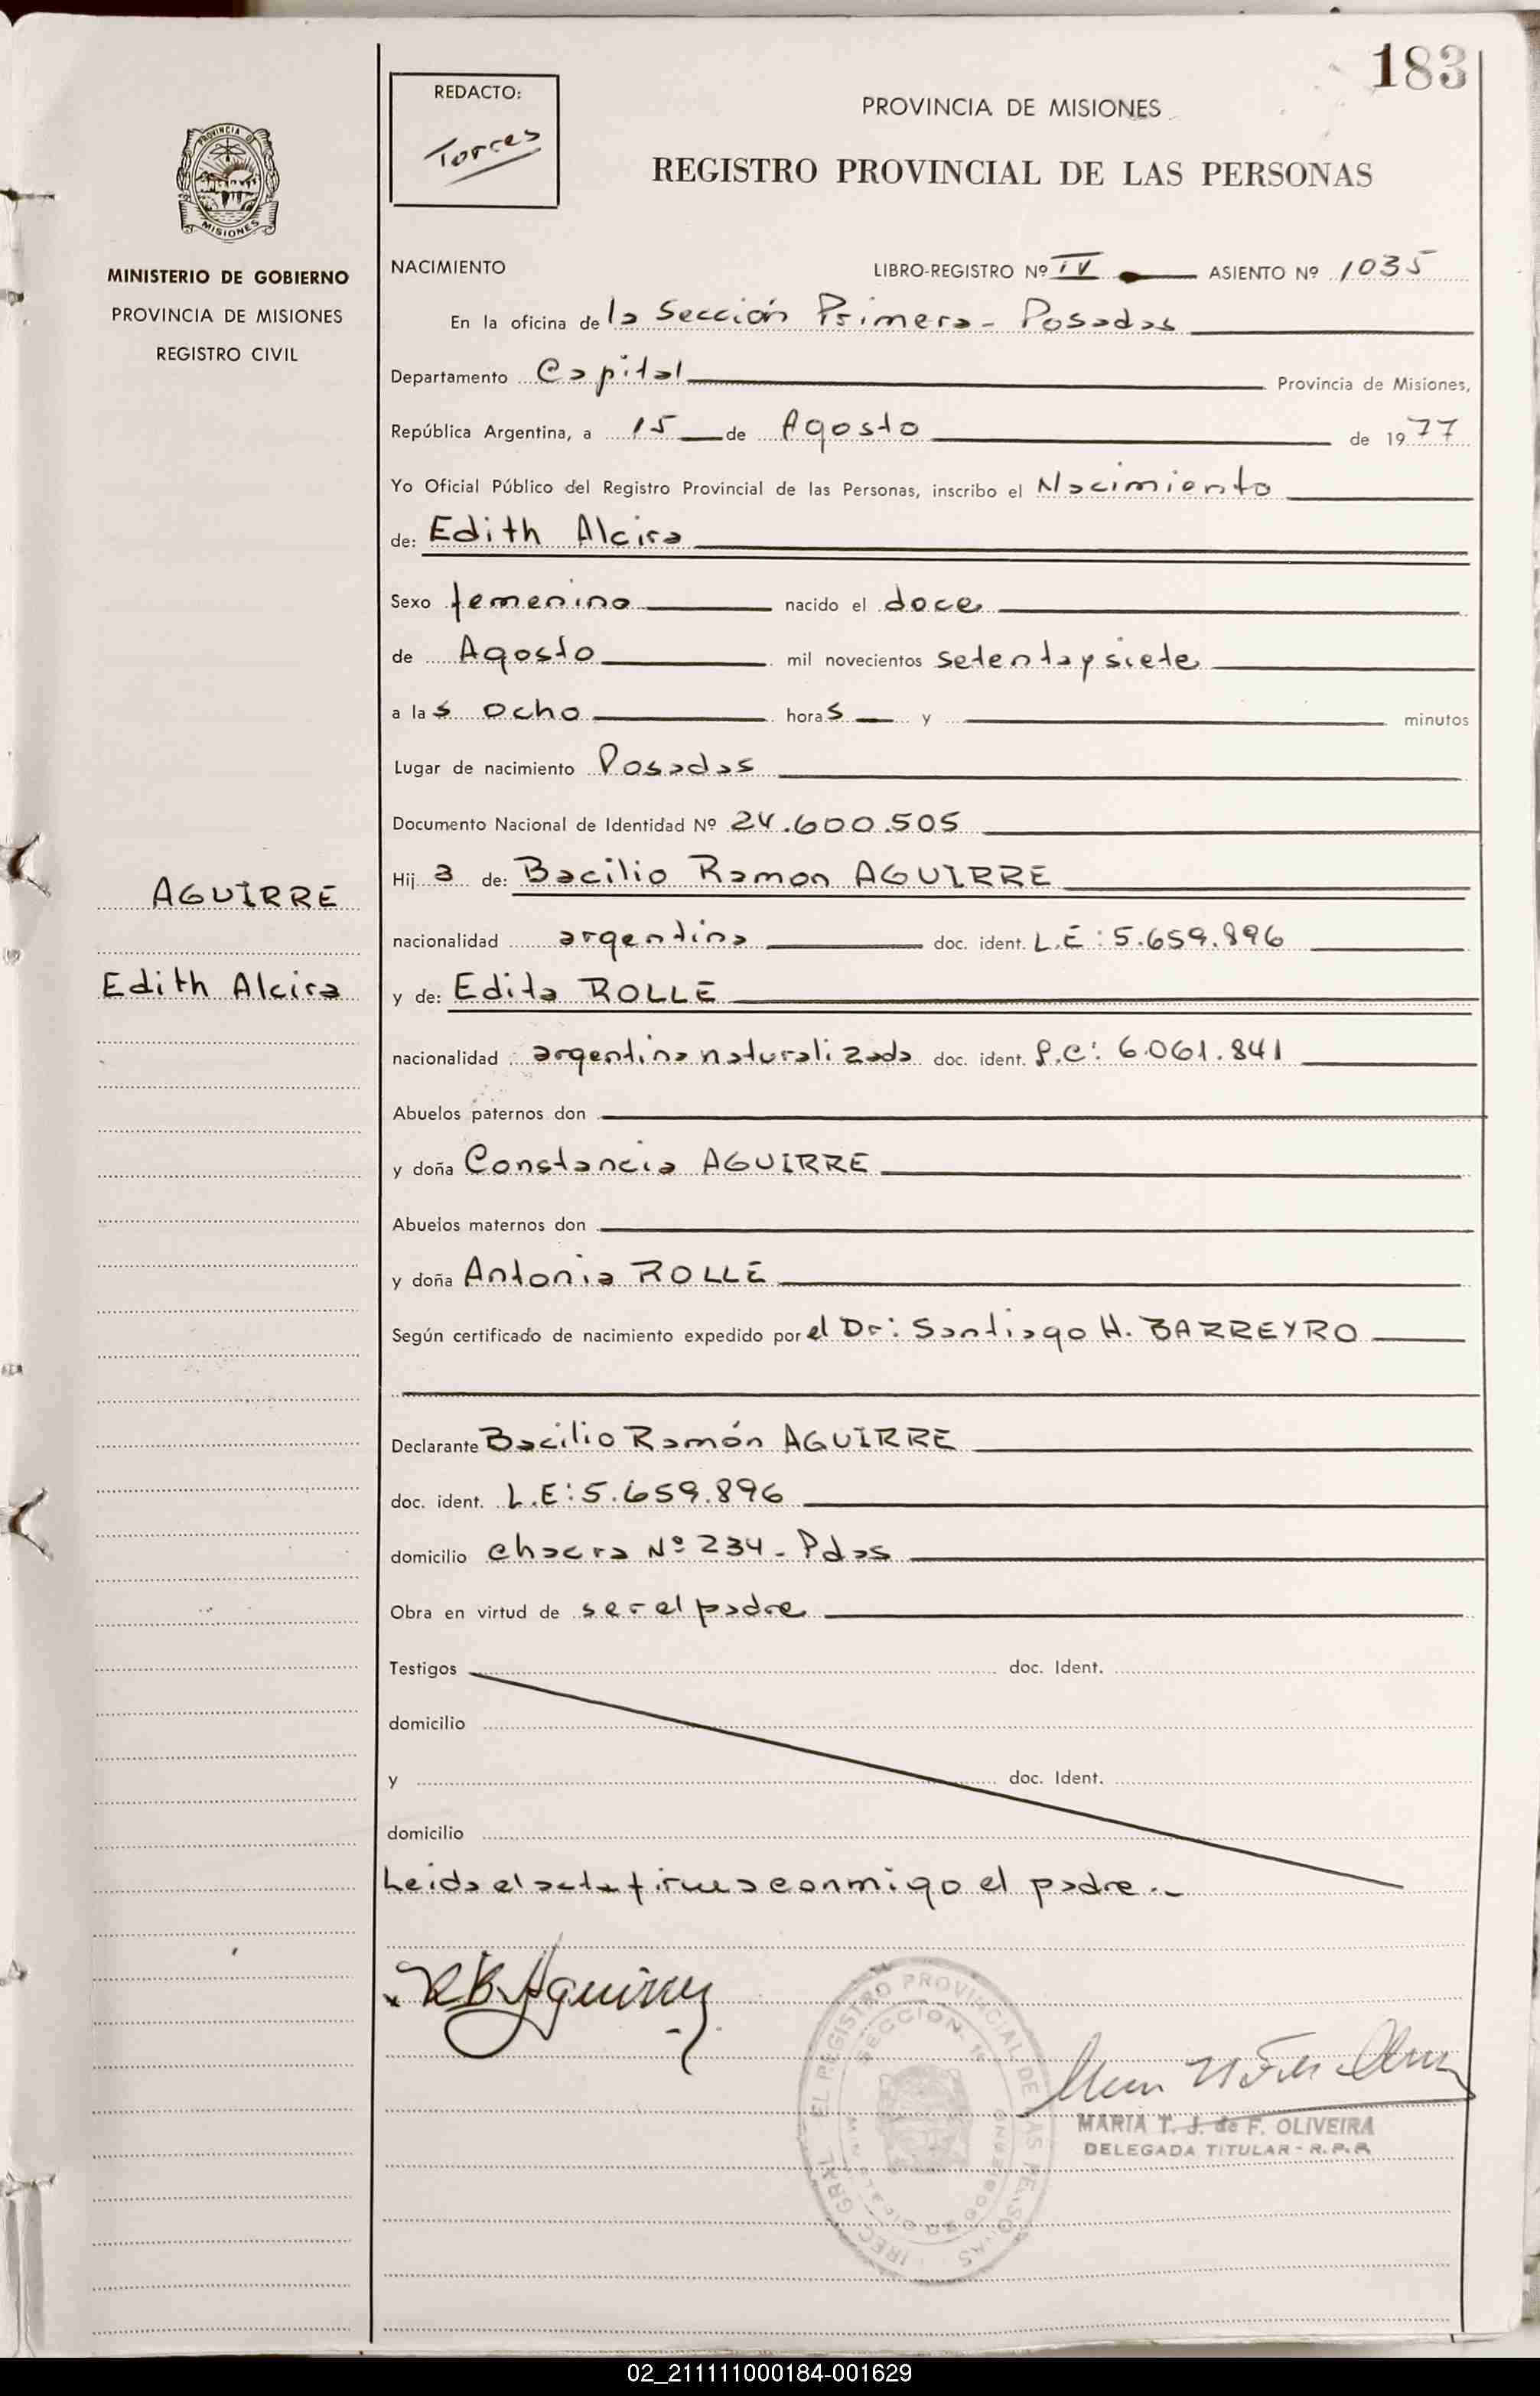 183
REDACTO:
Torres
PROVINCIA DE MISIONES
REGISTRO PROVINCIAL DE LAS PERSONAS
PROVINCIA DE
MISIONES
MINISTERIO DE GOBIERNO
PROVINCIA DE MISIONES
REGISTRO CIVIL
NACIMIENTO LIBRO-REGISTRO Nº IV ASIENTO Nº 1035
En la oficina de la Sección Primera - Posadas
Departamento Capital Provincia de Misiones,
República Argentina, a 15 de Agosto de 1977
Yo Oficial Público del Registro Provincial de las Personas, inscribo el Nacimiento
de: Edith Alcira
Sexo femenino nacido el doce
de Agosto mil novecientos setenta y siete
a las ocho horas y minutos
Lugar de nacimiento Posadas
Documento Nacional de Identidad Nº 24.600.505
Hija de: Bacilio Ramon AGUIRRE
AGUIRRE
nacionalidad argentina doc. ident. L.E: 5.659.896
Edith Alcira
y de: Edita ROLLE
nacionalidad argentina naturalizada doc. ident. 6.061.841
Abuelos paternos don
y doña Constancia AGUIRRE
Abuelos maternos don
y doña Antonia ROLLE
Según certificado de nacimiento expedido por el Dr: Santiago H. BARREYRO
Declarante Bacilio Ramón AGUIRRE
doc. ident. L.E: 5.659.896
domicilio chacra Nº 234 - Pdas
Obra en virtud de ser el padre
Testigos doc. Ident.
domicilio
y doc. Ident.
domicilio
Leida el acta firma conmigo el padre.-
RBAguirre
REGISTRO PROVINCIAL DE LAS PERSONAS
SECCION 1ª
MARIA T. J. de F. OLIVEIRA
DELEGADA TITULAR - R.P.P.
02_211111000184-001629